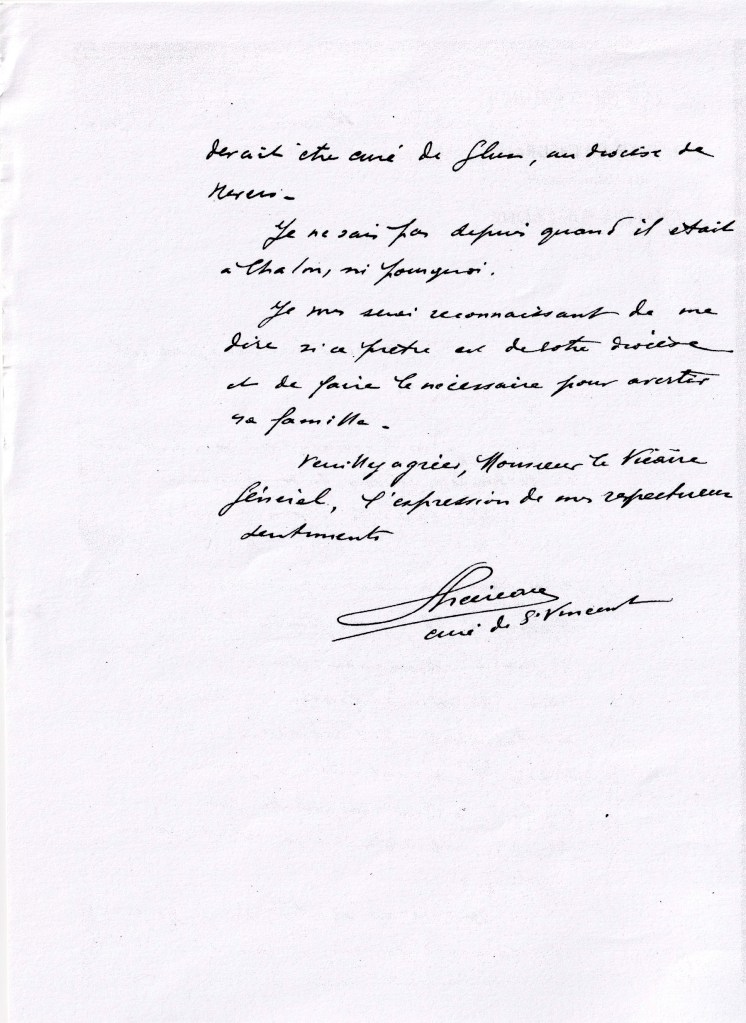 devait être curé de Glux, au diocèse de
Nevers -
Je ne sais pas depuis quand il était
à Chalon, ni pourquoi.
Je vous serai reconnaissant de me
dire si ce prêtre est de votre diocèse
et de faire le nécessaire pour avertir
sa famille -
Veuillez agréer, Monsieur le Vicaire
Général, l'expression de mes respectueux
sentiments
curé de St Vincent